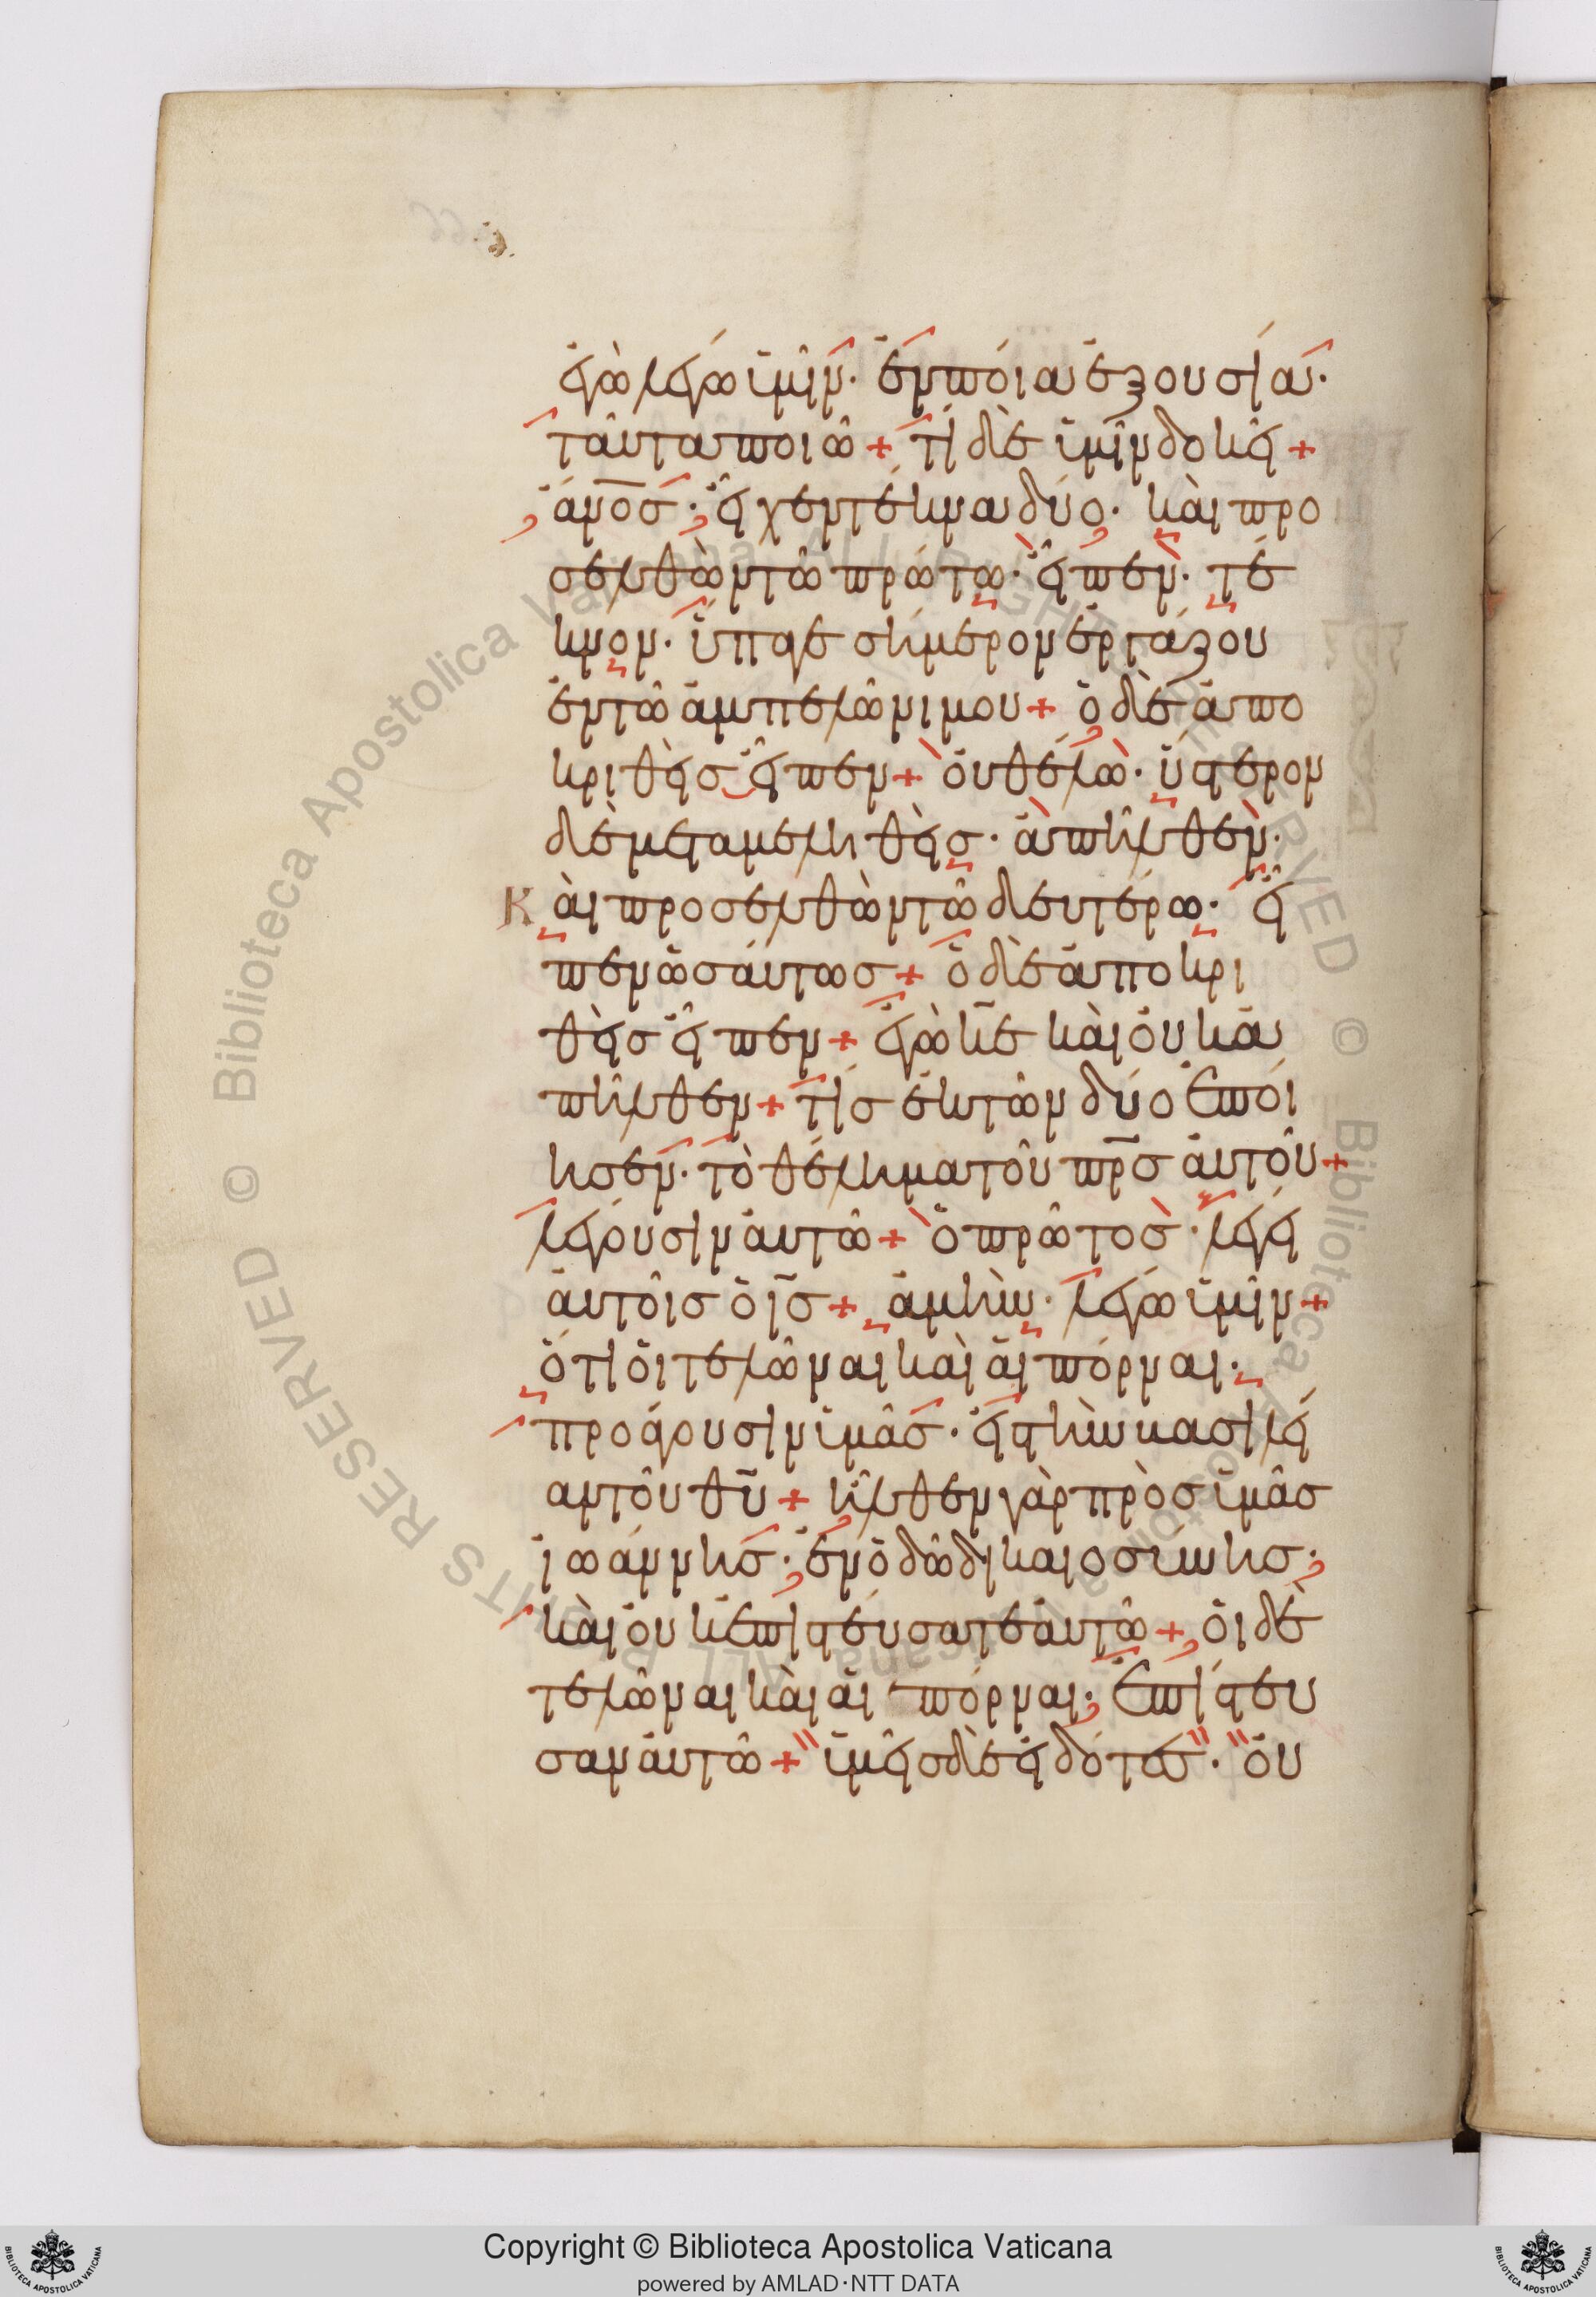 ἐγὼ λέγω ὑμῖν· ἐν ποία ἐξουσία·
ταῦτα ποιῶ + τί δὲ ὑμῖν δοκεῖ +
ἄνο̅σ· εἶχεν τέκνα δύο· καὶ προ
σελθὼν τῶ πρώτω· εἶπεν· τέ
κνον· ὕπαγε σήμερον ἐργάζου
ἐν τῶ ἀμπελῶνι μου + ὁ δὲ ἀπο
κριθεὶσ εἶπεν + οὐ θέλω· ὕστερον
δὲ μεταμεληθεὶσ· ἀπῆλθεν·
Καὶ προσελθὼν τῶ δευτέρω· εἶ
πεν ὡσάυτωσ + ὁ δὲ ἀποκρι
θεὶσ εἶπεν + ἐγὼ κ̅ε καὶ οὐκ ἀ
πῆλθεν + τίσ ἐκ τῶν δύο ἐποί
ησεν· τὸ θέλημα τοῦ πρ̅σ ἀυτοῦ +
λέγουσιν ἀυτῶ + ὁ πρῶτοσ· λέγει
ἀυτοῖσ ὁ ι̅σ + ἀμὴν· λέγω ὑμῖν +
ὅτι ὁι τελῶναι καὶ ἁι πόρναι·
προάγουσιν ὑμᾶσ· εἰσ τὴν βασιλεί
αν τοῦ θ̅υ + ἦλθεν γὰρ πρὸσ ὑμᾶσ
ἰωάννησ· ἐν ὁδῶ δικαιοσύνησ·
καὶ οὐκ ἐπιστέυσατε ἀυτῶ + ὁι δὲ
τελῶναι καὶ ἁι πόρναι· ἐπίστευ
σαν ἀυτῶ + ὑμεῖσ δὲ ἰδόντεσ· οὐ
Copyright © Biblioteca Apostolica Vaticana
powered by AMLAD·NTT DATA